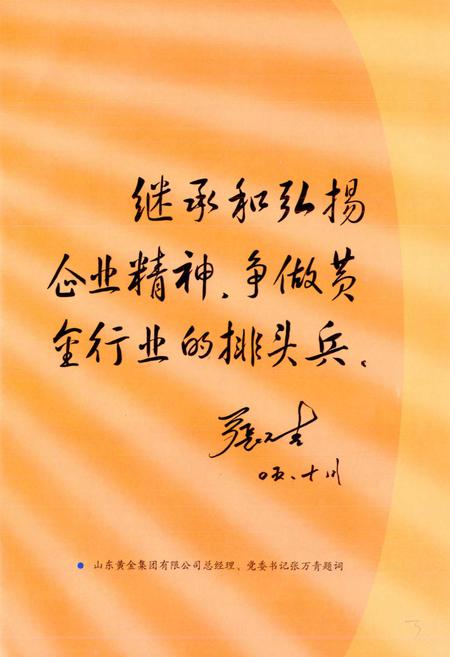 继承和弘揚
企业精神、争做黄
金行业的排头兵。
张万青
05.十月
山东黄金集团有限公司总经理、党委书记张万青题词
3